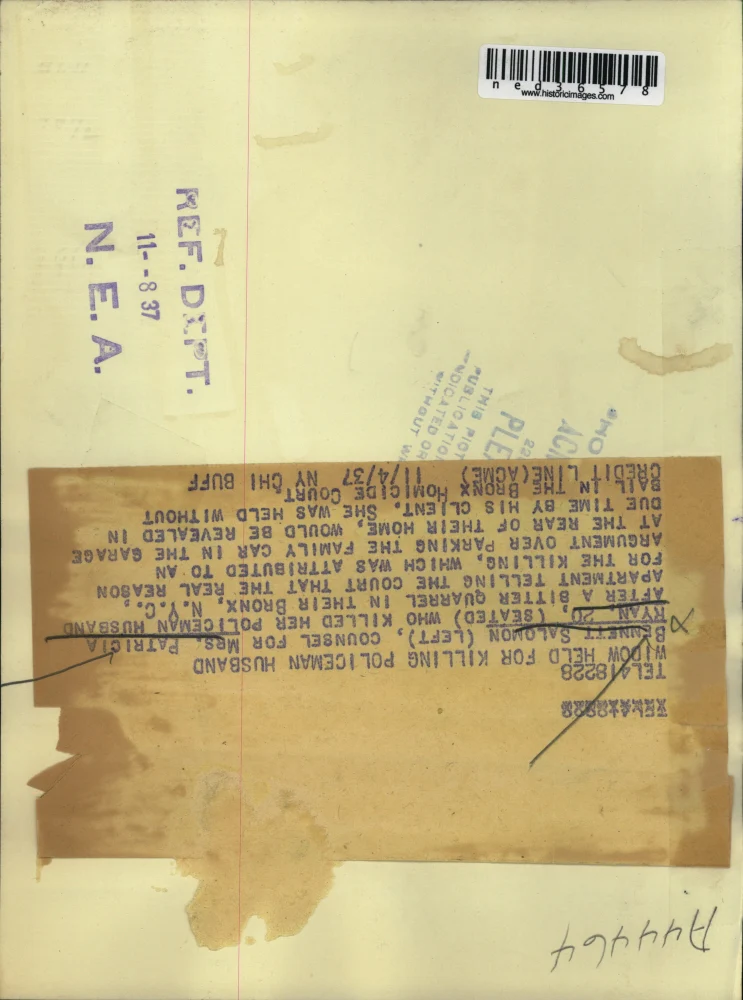 ned36578
www.historicimages.com
REF. DEPT.
11--8 37
N. E. A.
THIS
PUBLICATION
SYNDICATED OR
WITHOUT
PLE
22
AC
TEL418228
TEL418228
WIDOW HELD FOR KILLING POLICEMAN HUSBAND
BENNETT SALOMON (LEFT), COUNSEL FOR MRS. PATRICIA
RYAN, 20, (SEATED) WHO KILLED HER POLICEMAN HUSBAND
AFTER A BITTER QUARREL IN THEIR BRONX, N.Y.C.,
APARTMENT TELLING THE COURT THAT THE REAL REASON
FOR THE KILLING, WHICH WAS ATTRIBUTED TO AN
ARGUMENT OVER PARKING THE FAMILY CAR IN THE GARAGE
AT THE REAR OF THEIR HOME, WOULD BE REVEALED IN
DUE TIME BY HIS CLIENT. SHE WAS HELD WITHOUT
BAIL IN THE BRONX HOMICIDE COURT.
CREDIT LINE(ACME) 11/4/37 NY CHI BUFF
A44464